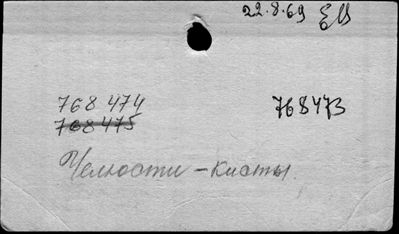 22.8.69 ЕИ
768474 768473
768475
Челюсти - кисты.